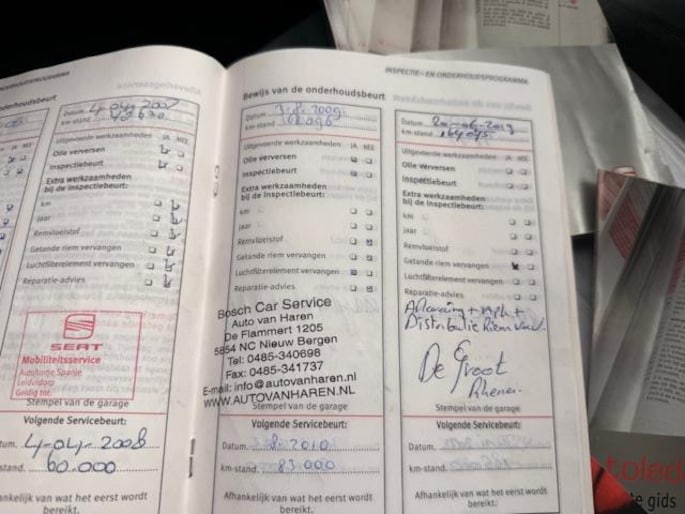 INSPECTIE- EN ONDERHOUDSPROGRAMMA
Datum 4-04-2007
km-stand
Uitgevoerde werkzaamheden JA NEE
Olie verversen
Inspectiebeurt
Extra werkzaamheden
bij de inspectiebeurt:
km
Jaar
Remvloeistof
Getande riem vervangen
Luchtfilterelement vervangen
Reparatie-advies
SEAT
Mobiliteitsservice
Autohome Spanje
Leiderdorp
Geldig tot:
Stempel van de garage
Volgende Servicebeurt:
4-04-2008
60.000
Afhankelijk van wat het eerst wordt
bereikt.
Bewijs van de onderhoudsbeurt
Datum 3.8.2009
km-stand 68096
Uitgevoerde werkzaamheden: JA NEE
Olie verversen
Inspectiebeurt
Extra werkzaamheden
bij de inspectiebeurt:
km
Jaar
Remvloeistof
Getande riem vervangen
Luchtfilterelement vervangen
Reparatie-advies
Bosch Car Service
Auto van Haren
De Flammert 1205
5854 NC Nieuw Bergen
Tel: 0485-340698
Fax: 0485-341737
E-mail: info@autovanharen.nl
WWW.AUTOVANHAREN.NL
Stempel van de garage
Volgende Servicebeurt:
Datum 8.2010
km-stand. 83.000
Afhankelijk van wat het eerst wordt
bereikt.
Datum
km-stand
Uitgevoerde werkzaamheden: JA NEE
Olie verversen
Inspectiebeurt
Extra werkzaamheden
bij de inspectiebeurt:
km
Jaar
Remvloeistof
Getande riem vervangen
Luchtfilterelement vervangen
Reparatie-advies
Distributie Riem
De Groot
Rhenen
Stempel van de garage
Volgende Servicebeurt:
Datum.
km-stand.
Afhankelijk van wat het eerst wordt
bereikt.
toled
te gids